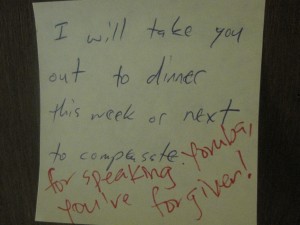 I will take you
out to dinner
this week or next
to compensate
for speaking Yoruba,
you've forgiven!